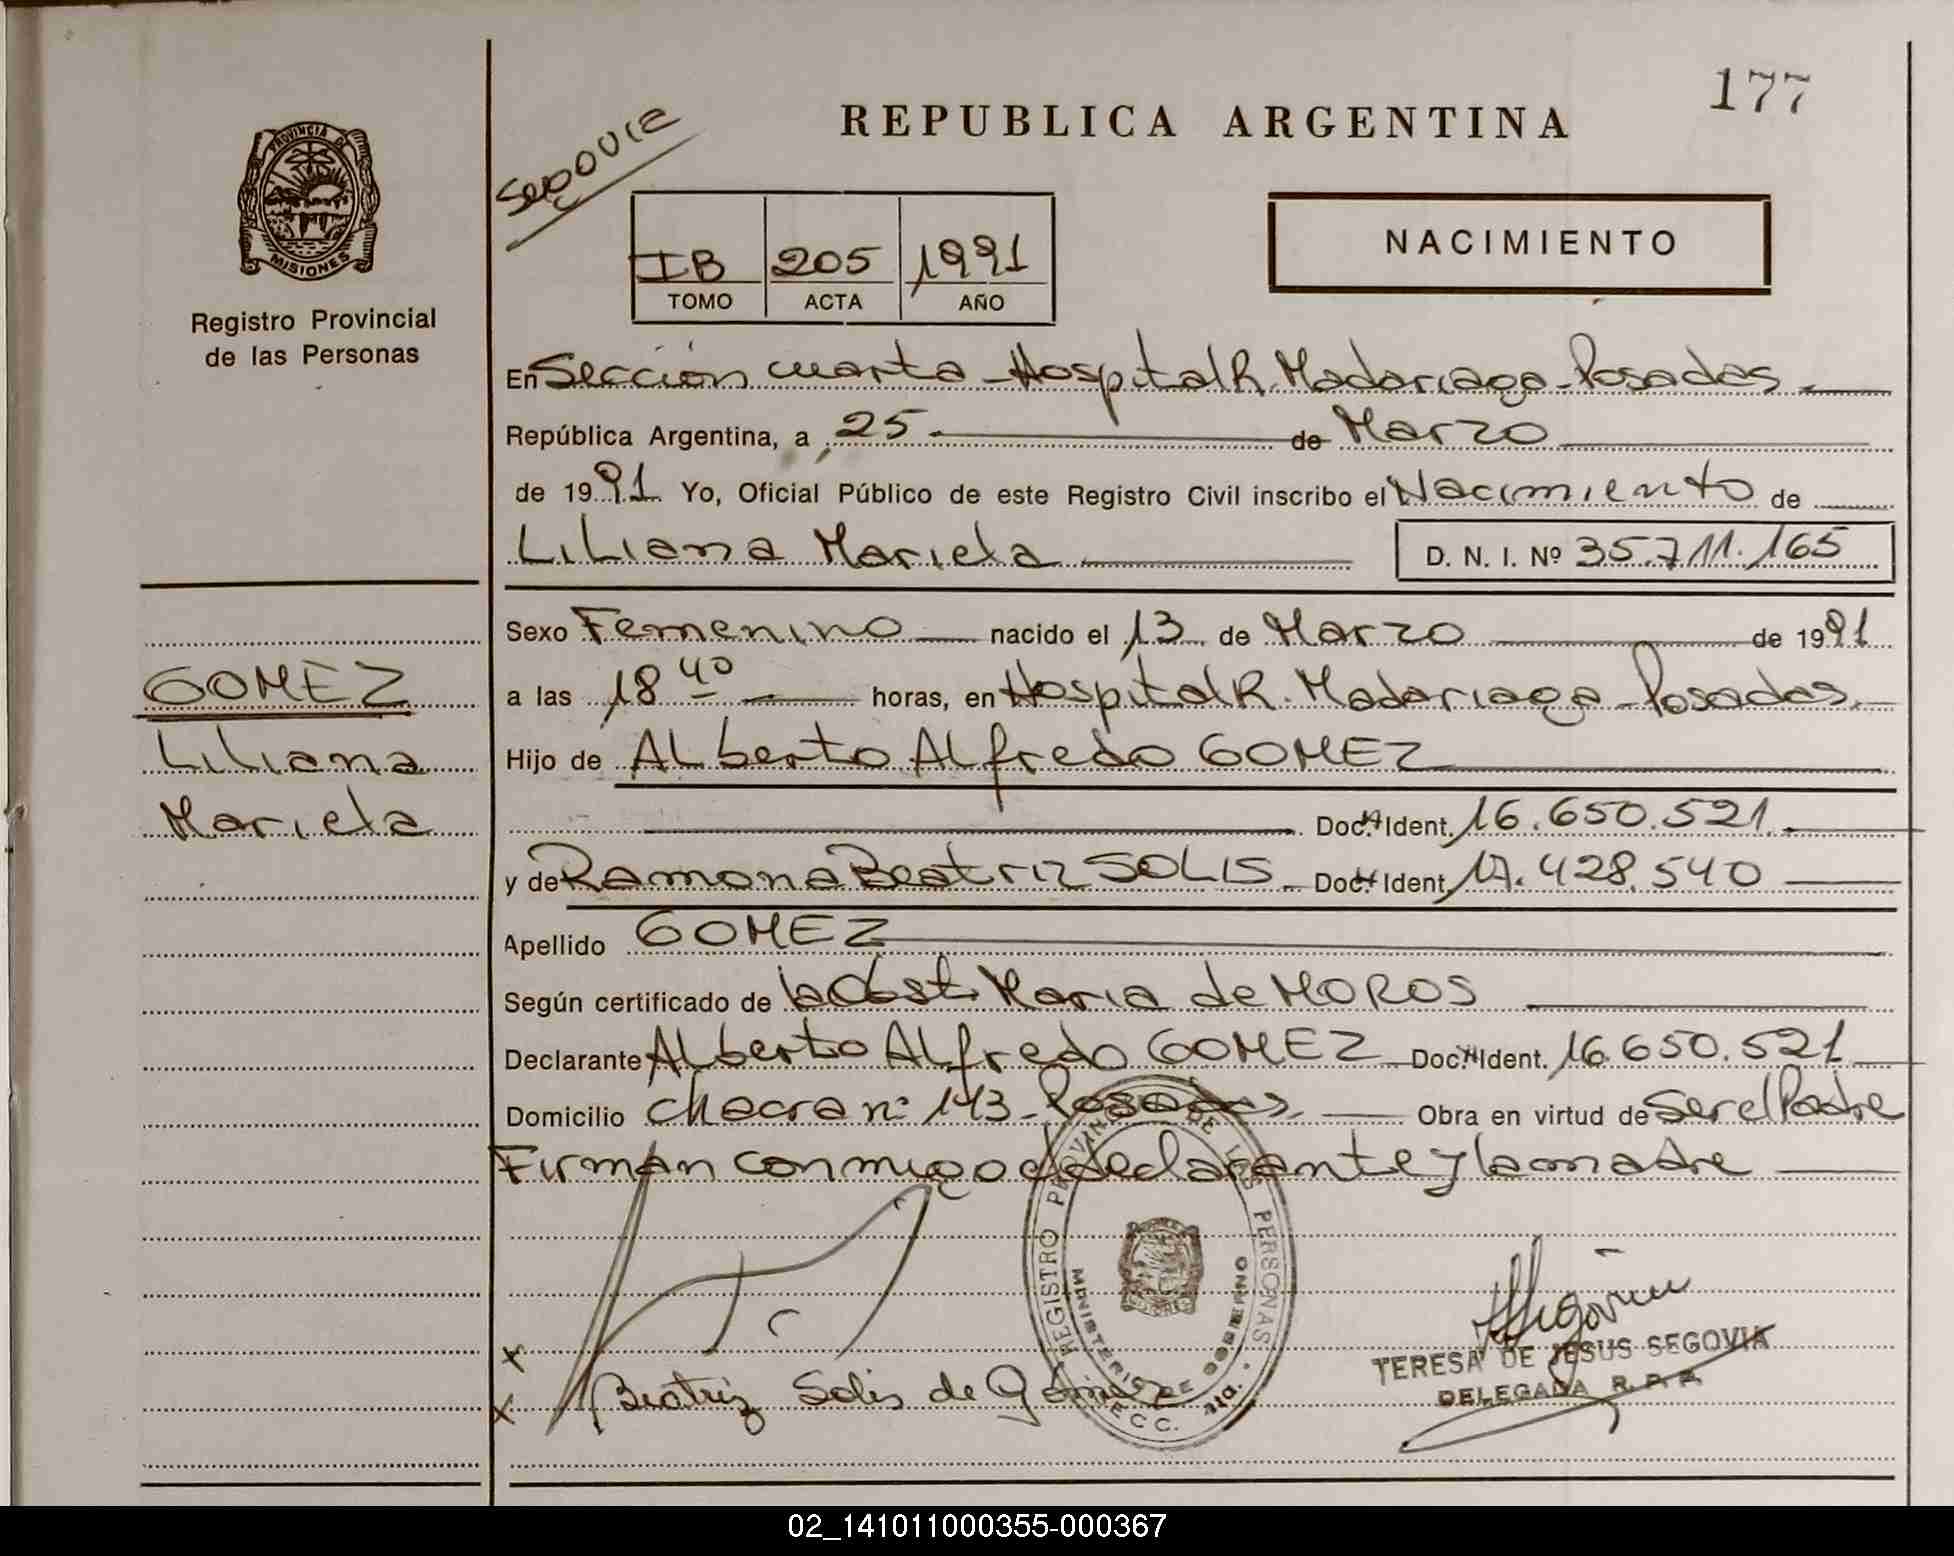 177
REPUBLICA ARGENTINA
PROVINCIA DE
MISIONES
Registro Provincial
de las Personas
NACIMIENTO
IB 205 1991
TOMO ACTA AÑO
En Sección cuarta - Hospital R. Madariaga - Posadas.
República Argentina, a 25 de Marzo
de 1991 Yo, Oficial Público de este Registro Civil inscribo el Nacimiento de
Liliana Mariela D. N. I. Nº 35.711.165
Sexo Femenino nacido el 13 de Marzo de 1991
a las 18 40 horas, en Hospital R. Madariaga - Posadas.
Hijo de Alberto Alfredo GOMEZ
Doc. Ident. 16.650.521
y de Ramona Beatriz SOLIS Doc. Ident. 17.428.540
Apellido GOMEZ
Según certificado de la Obst. Maria de MOROS
Declarante Alberto Alfredo GOMEZ Doc. Ident. 16.650.521
Domicilio Chacra nº 143 - Posadas. Obra en virtud de Ser el Padre
Firman conmigo el declarante y la madre
GOMEZ
Liliana
Mariela
REGISTRO PROVINCIAL DE LAS PERSONAS
MINISTERIO DE GOBIERNO
x
x Beatriz Solis de Gómez
Segovia
TERESA DE JESUS SEGOVIA
DELEGADA R. P. P.
02_141011000355-000367